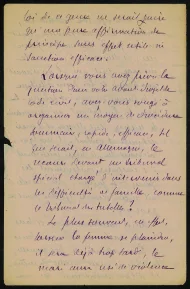 loi de ce genre ne serait guère
qu'une pure affirmation de
principe sans effet utile ni
sanction efficace.
Lorsque vous avez prévu la
question dans votre
code civil, avez-vous songé à
organiser un moyen de procédure
, rapide, efficace, tel
que serait, en Allemagne, le
recours devant un tribunal
spécial chargé d'intervenir dans
les difficultés de famille, comme
le tribunal des tutelles ?
Le plus souvent, en effet,
lorsque la femme se plaindra,
il sera déjà trop tard, le
mari aura usé de violence